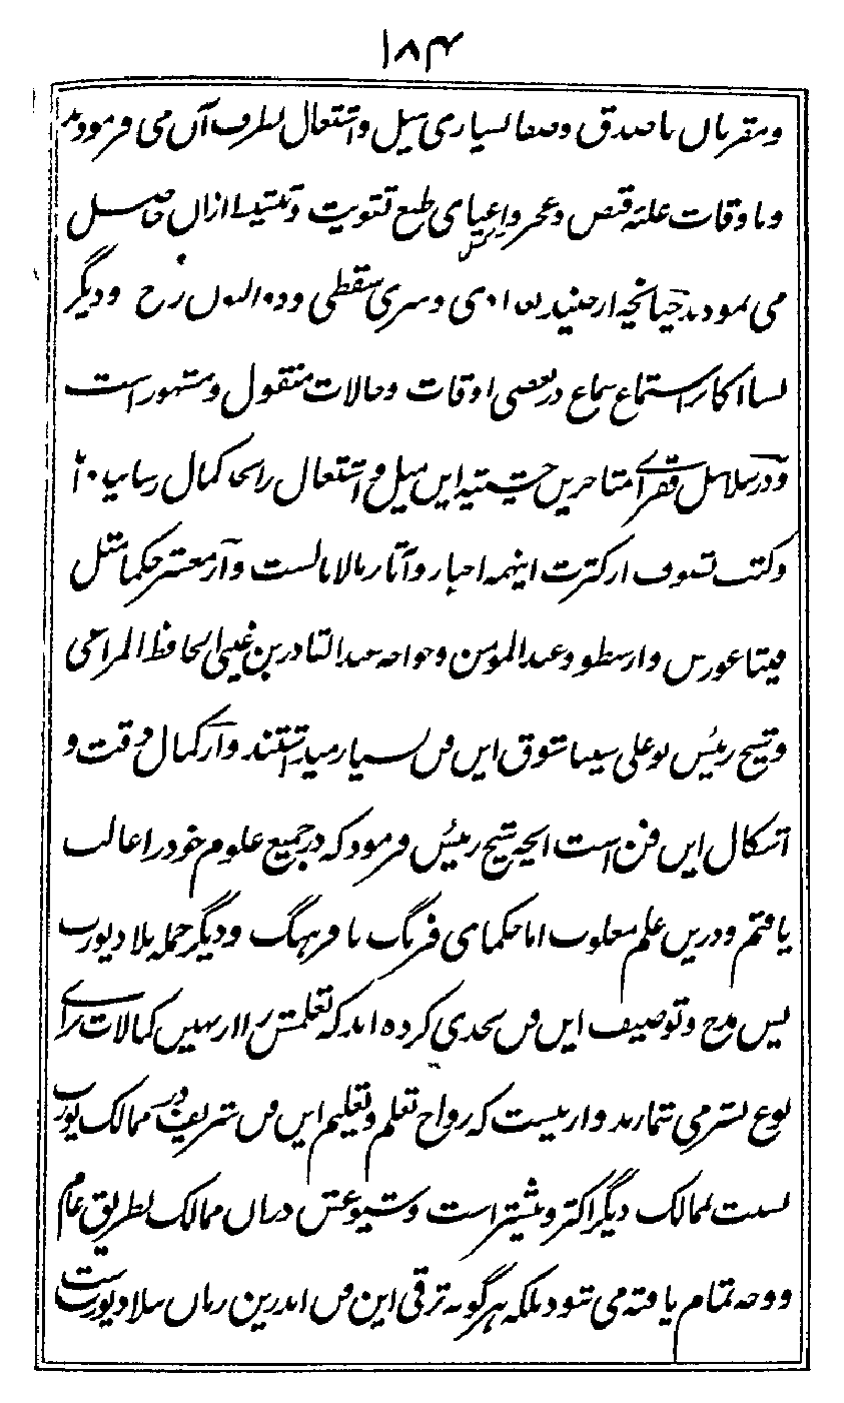 ۱۸۴
و مقربان با صدق و صفا بسیاری میل و اشتغال بطرف آن می فرمودند
و باوقات غلبه قبض و عجز و اعیای طبع تقویت و تبسیط ازان حاصل
می نمودند چنانچه از جنید بغدادی و سری سقطی و ذوالنون رح و دیگر
بسا اکابر استماع سماع در بعضی اوقات و حالات منقول و مشهور است
و در سلاسل فقرای متاخرین چشتیه این میل و اشتغال را بحد کمال رسانیده اند
و کتب تصوف از کثرت اینهمه اخبار و آثار مالامالست و از معشر حکما مثل
فیثاغورس و ارسطو و عبدالمومن و خواجه عبدالقادر بن غیبی الحافظ المراغی
و شیخ رئیس بوعلی سینا شوق این فن بسیار میداشتند و از کمال دقت و
اشکال این فن است آنچه شیخ رئیس فرمود که در جمیع علوم خود را غالب
یافتم و درین علم مغلوب اما حکمای فرنگ با فرهنگ و دیگر جمله بلاد یورپ
پس مدح و توصیف این فن بحدی کرده اند که تعلمش را از بهین کمالات برای
نوع بشر می شمارند و ازینست که رواج تعلم و تعلیم این فن شریف در ممالک یورپ
بنسبت ممالک دیگر اکثر و بیشتر است و شیوعش دران ممالک بطریق عام
و وجه تمام یافته می شود بلکه هر گونه ترقی این فن اندرین زمان ببلاد یورپ است